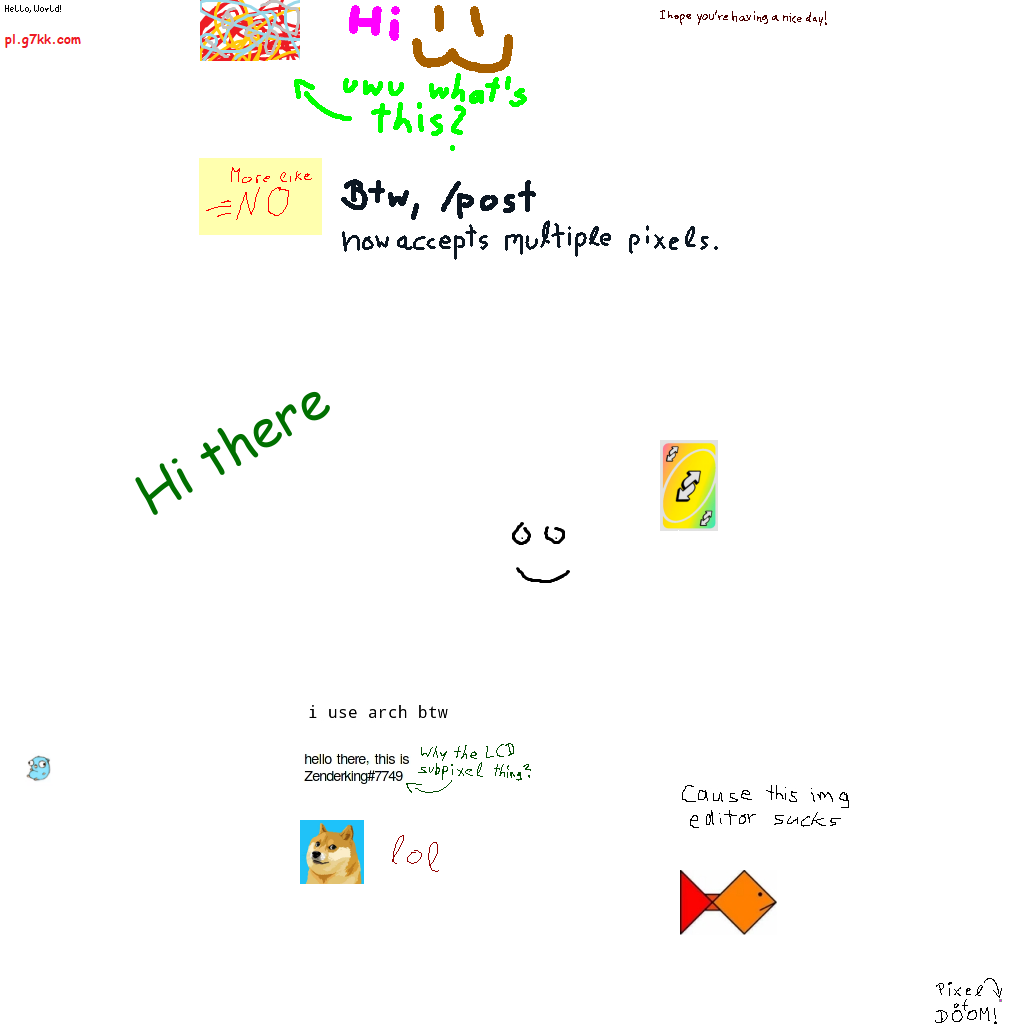 Hello, World!
pl.g7kk.com
Hi
I hope you're having a nice day!
uwu what's
this?
More like
=NO
Btw, /post
now accepts multiple pixels.
Hi there
i use arch btw
hello there, this is
Zenderking#7749
Why the LCD
subpixel thing?
Cause this img
editor sucks
lol
Pixel
of
DOOM!